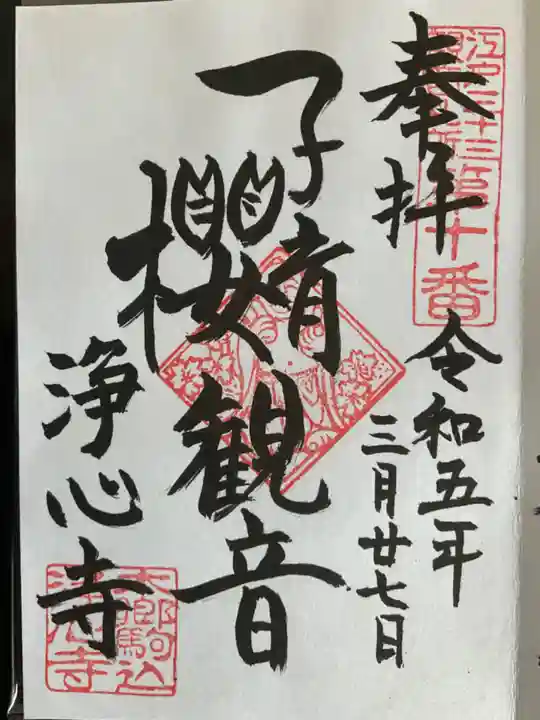 奉拝
江戸三十三
第十番
令和五年
三月廿七日
子育
櫻
観音
浄心寺
本郷駒込
浄心寺